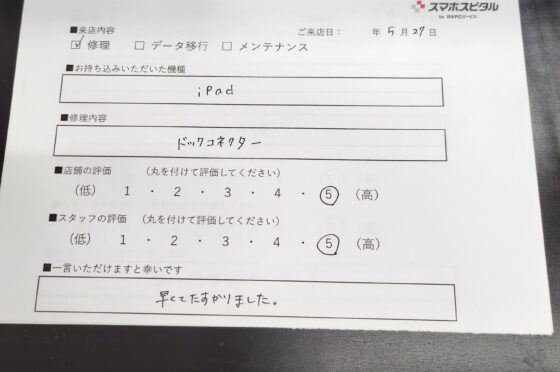 スマホスピタル
by 日本PCサービス
■来店内容 ご来店日： 年 5 月 27 日
☑ 修理 □ データ移行 □ メンテナンス
■お持ち込みいただいた機種
iPad
■修理内容
ドックコネクター
■店舗の評価 （丸を付けて評価してください）
（低） 1 ・ 2 ・ 3 ・ 4 ・ 5 （高）
■スタッフの評価 （丸を付けて評価してください）
（低） 1 ・ 2 ・ 3 ・ 4 ・ 5 （高）
■一言いただけますと幸いです
早くてたすかりました。